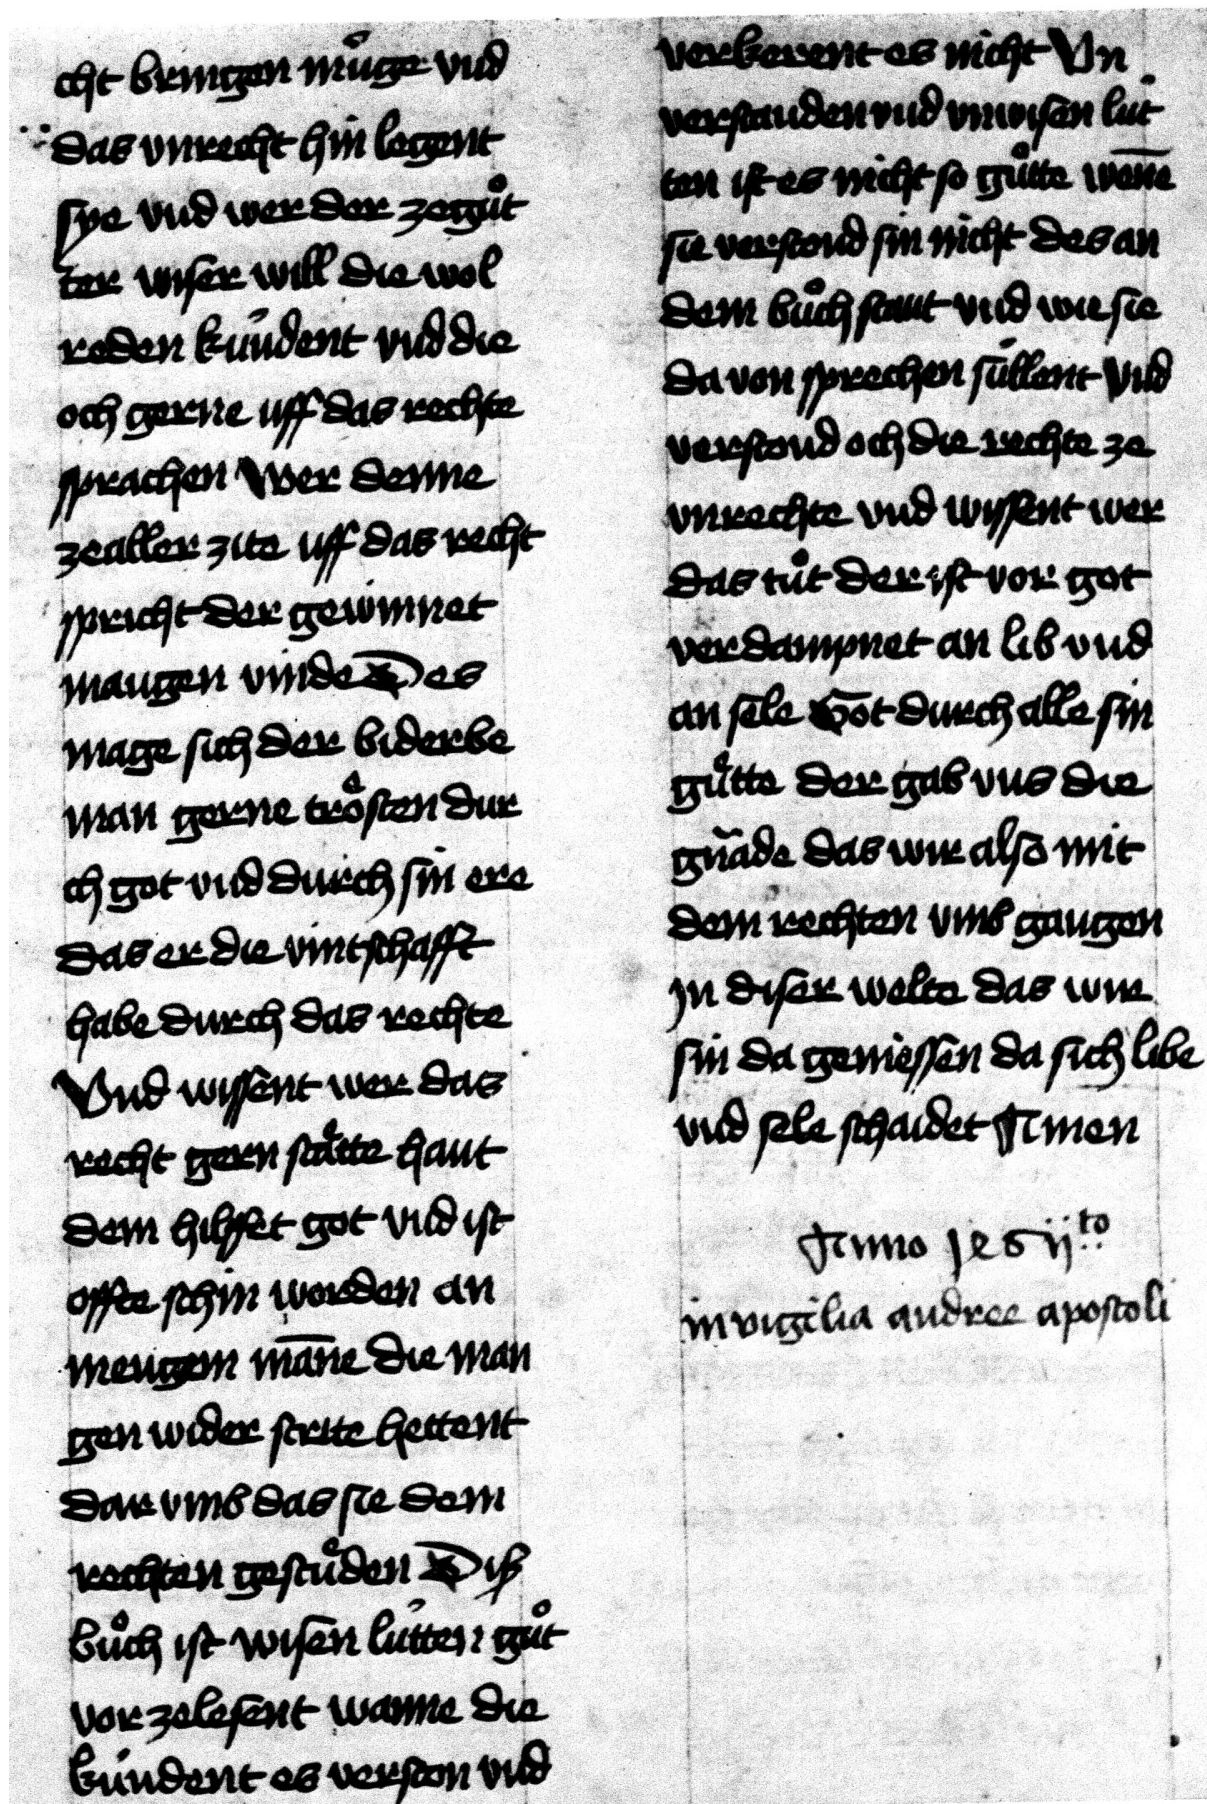 cht bringen mu̍ge vnd
das vnrecht hin legent
sye vnd wer der ze guͦt
ter vnser will die wol
reden ku̍ndent vnd die
och gerne uff das rechte
sprachen Wer denne
ze aller zite uff das recht
spricht der gewinnet
mangen vinde Des
mage sich der biderbe
man gerne troͤsten dur
ch got vnd durch sin ere
das er die vintschafft
habe durch das rechte
Vnd wissent wer das
recht gern staͤtte haut
dem hilffet got vnd ist
offte schin worden an
mengem man̄e die man
gen wider strite hettent
dar vmb das sie dem
rechten gestuͦden Diß
buͦch ist wisen lu̍tten guͦt
vor ze lesent wanne die
ku̍ndent es verston vnd
verkerent es nicht Vn
verstanden vnd vnwisen lu̍t
ten ist es nicht so guͦtte wen̄e
sie verstond sin nicht des an
dem buͦch staut vnd wie sie
da von sprechen su̍llent Vnd
verstond och die rechte ze
vnrechte vnd wissent wer
das tuͦt der ist vor got
verdampnet an lib vnd
an sele Got durch alle sin
guͤtte der gab vns die
gnāde das wir also mit
dem rechten vmb gangen
jn diser welte das wir
sin da geniessen da sich libe
vnd sele schaidet Amen
Anno
in vigilia andree apostoli